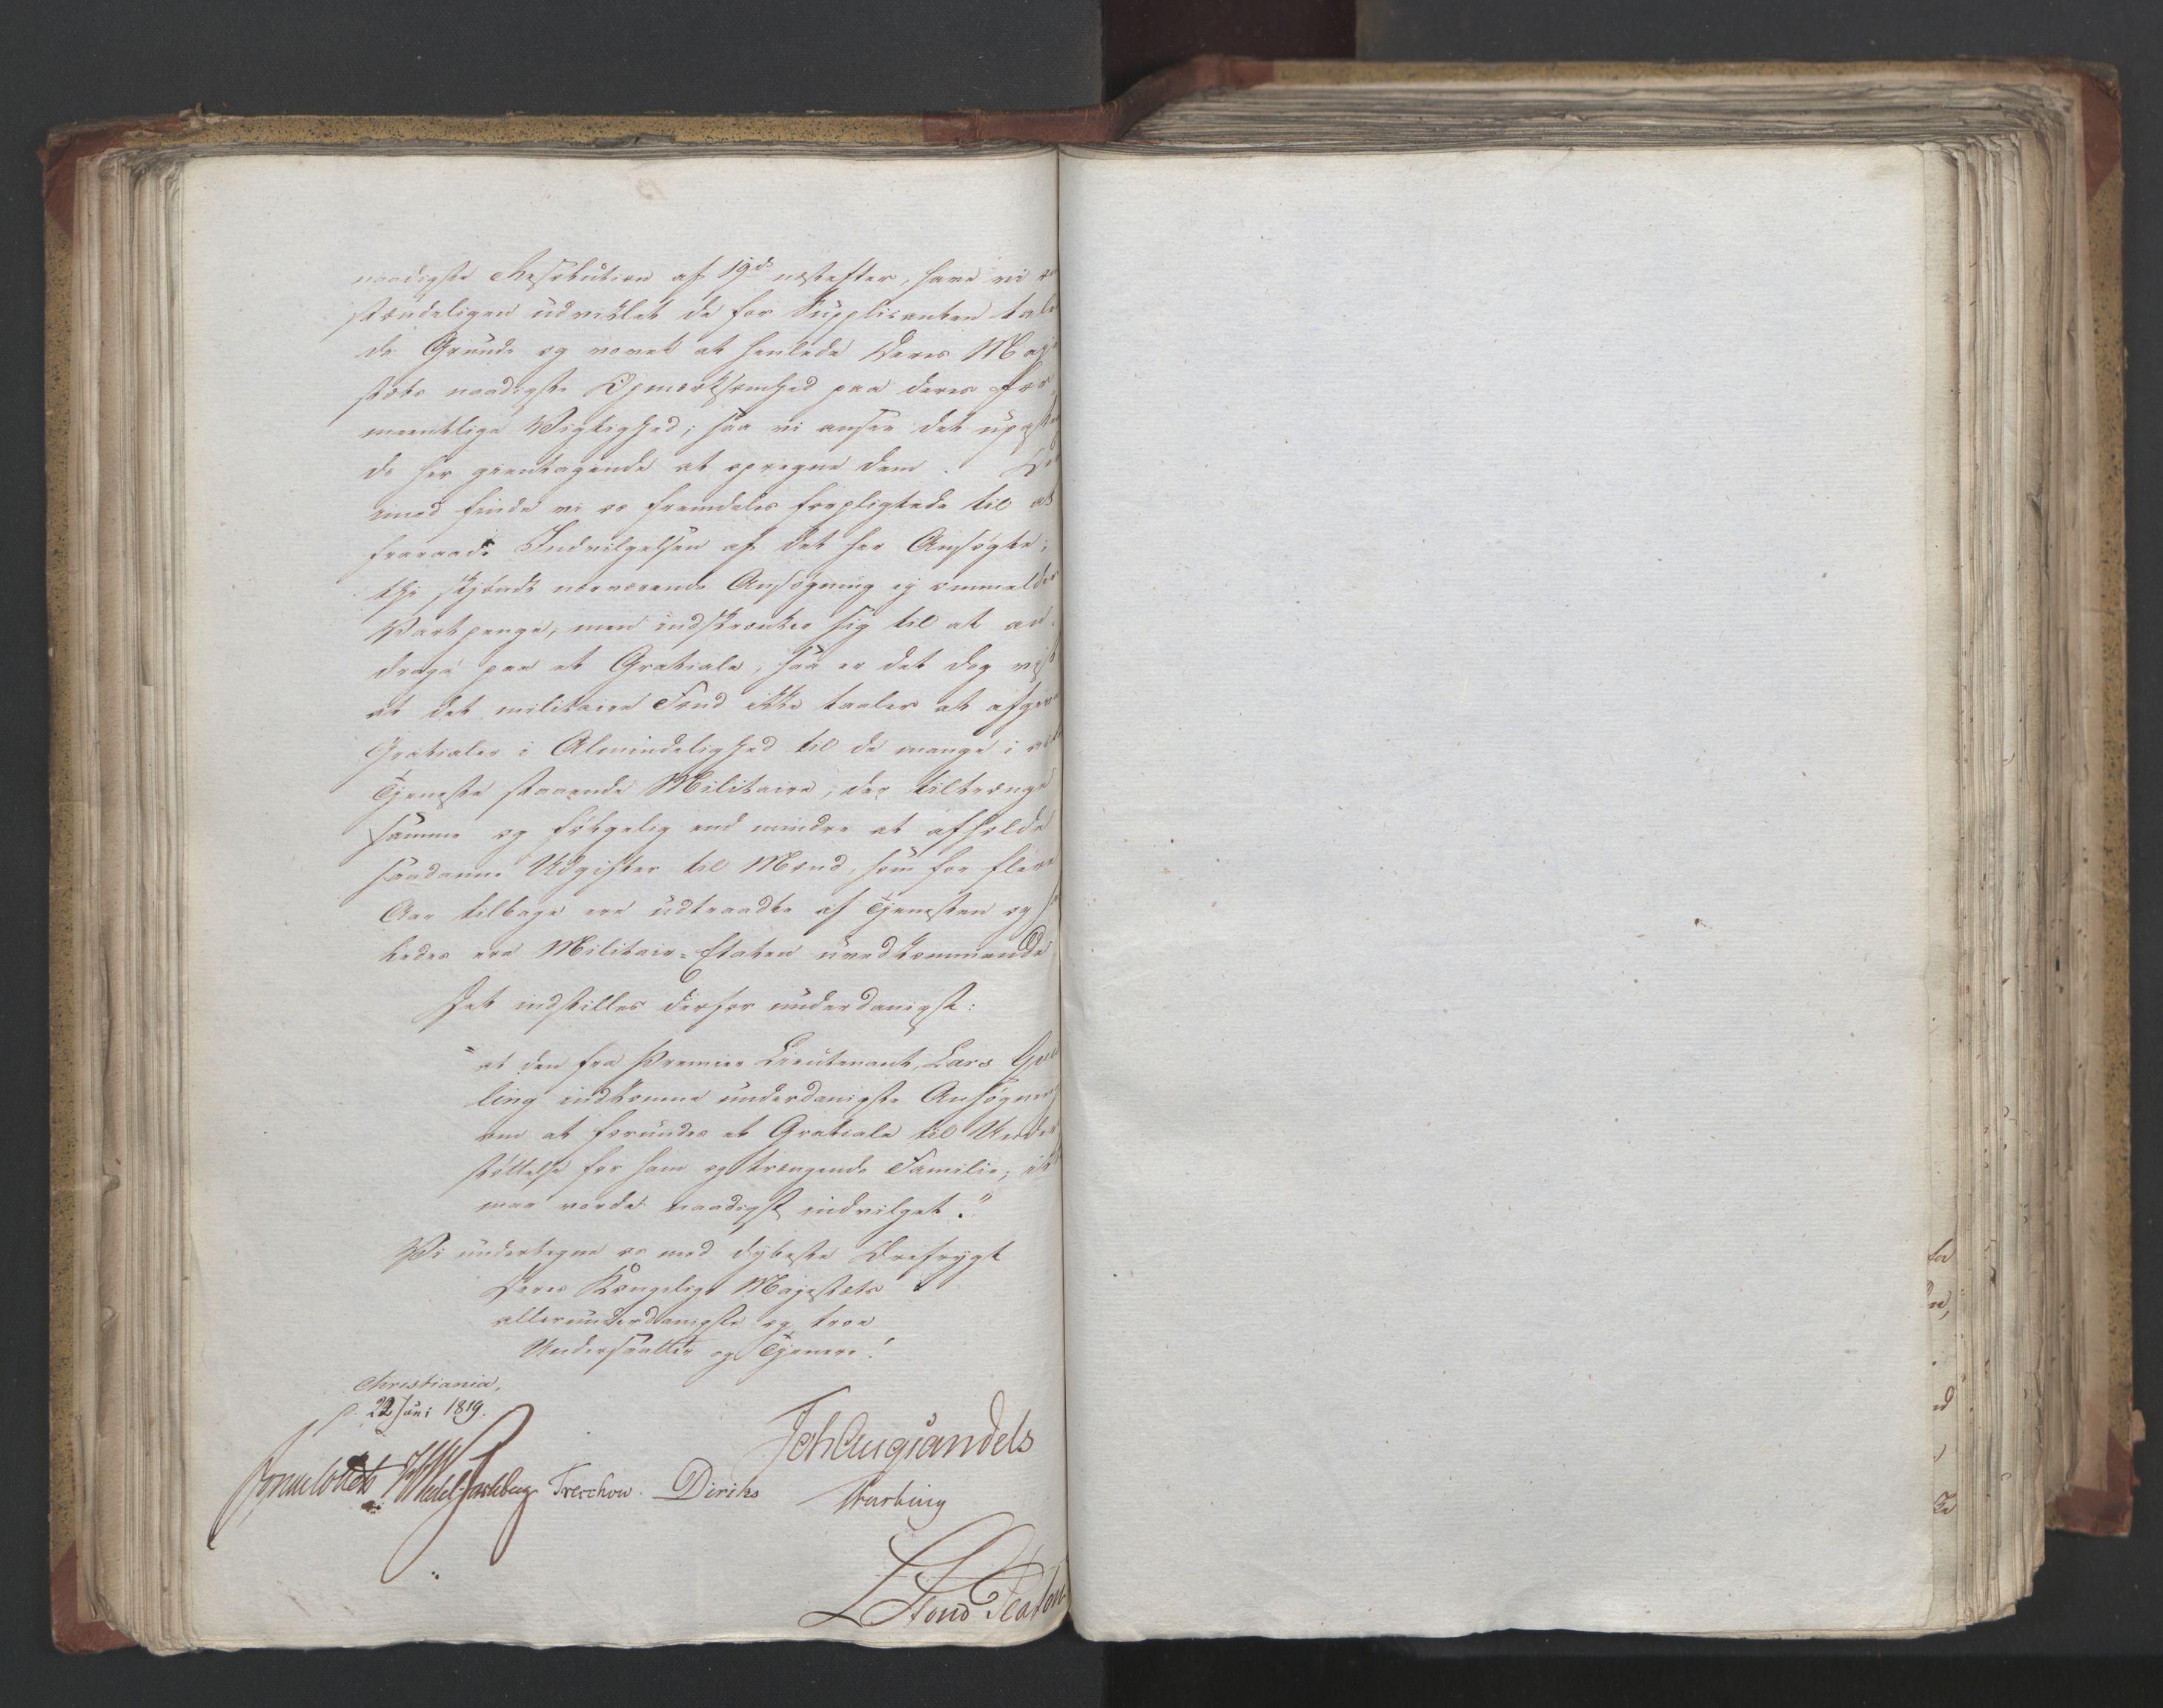 naadigste Resolution af 19de næstefter, have vi
stændeligen udviklet de for Supplicanten tale
de Grunde og vovet at henlede Deres Maje
stæts naadigste Opmærksomhed paa deres for
meentlige Vigtighed; saa vi ansee det
de her gientagende at opregne dem.
imod finde vi os fremdeles forpligtede til at
fraraade Indvilgelsen af det her Ansøgte;
thi skjøndt nærværende Ansøgning ej ommelder
Vartpenge, men indskrænker sig til at an
drage paa et Gratiale, saa er det dog vist
at det militaire Fond ikke taaler at afgive
Gratialer i Almindelighed til de mange i
Tjeneste staaende Militaire, der tiltrænge
samme og følgelig end mindre at afholde
saadanne Udgifter til Mænd, som for flere
Aar tilbage ere udtraadte af Tjenesten og
ledes ere Militair-Etaten uvedkommende
Det indstilles derfor underdanigst:
"at den fra Premier Lieutenant, Lars
ling indkomne underdanigste Ansøgning
om at forundes et Gratiale til Under
støttelse for ham og trængende Familie, ik
maa vorde naadigst indvilget."
Vi undertegne os med dybeste Ærefrygt
Deres Kongelige Majestæts
allerunderdanigste og troe
Undersaatter og Tjenere!
Christiania,
d. 22 Juni 1819.
Joh Aug Sandels
Wedel-Jarlsberg Treschow. Diriks